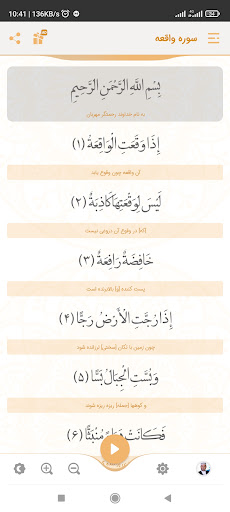 10:41 | 136KB/s
سوره واقعه
بِسْمِ اللَّهِ الرَّحْمَنِ الرَّحِيمِ
به نام خداوند رحمتگر مهربان
إِذَا وَقَعَتِ الْوَاقِعَةُ (۱)
آن واقعه چون وقوع یابد
لَيْسَ لِوَقْعَتِهَا كَاذِبَةٌ (۲)
[که] در وقوع آن دروغی نیست
خَافِضَةٌ رَافِعَةٌ (۳)
پست کننده [و] بالابرنده است
إِذَا رُجَّتِ الْأَرْضُ رَجًّا (۴)
چون زمین با تکان [سختی] لرزانده شود
وَبُسَّتِ الْجِبَالُ بَسًّا (۵)
و کوهها [جمله] ریزه ریزه شوند
فَكَانَتْ هَبَاءً مُنْبَثًّا (۶)